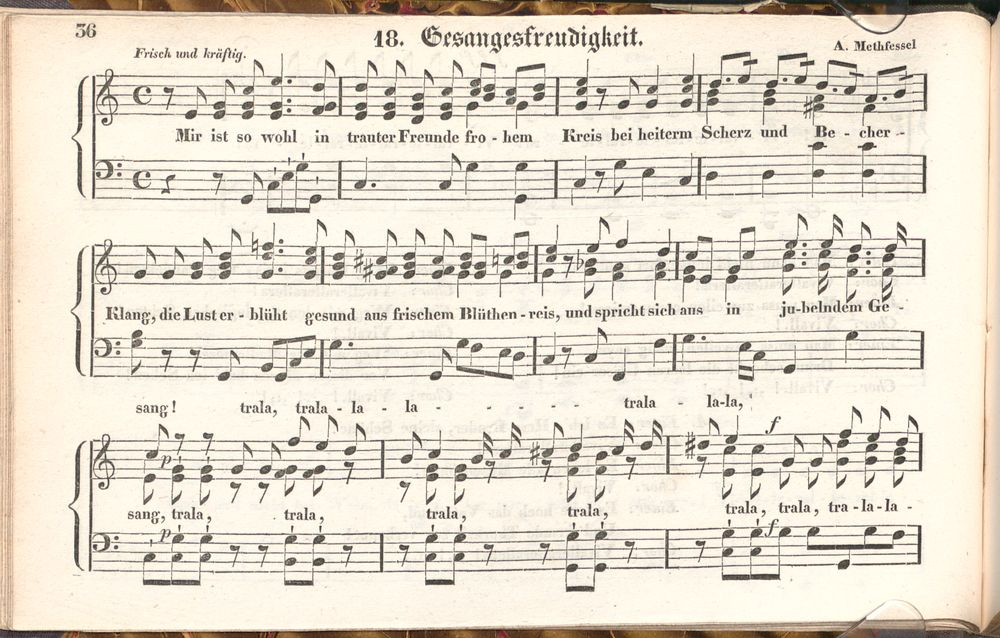 36
18. Gesangesfreudigkeit.
Frisch und kräftig.
A. Methfessel
Mir ist so wohl in trauter Freunde fro - hem Kreis bei heiterm Scherz und Be - cher -
Klang, die Lust er - blüht gesund aus frischem Blüthen - reis, und spricht sich aus in ju - belndem Ge -
sang! trala, trala - la - la - - - - - trala la-la,
f
p
sang, trala, trala, trala, trala, trala, trala, tra - la - la -
p f